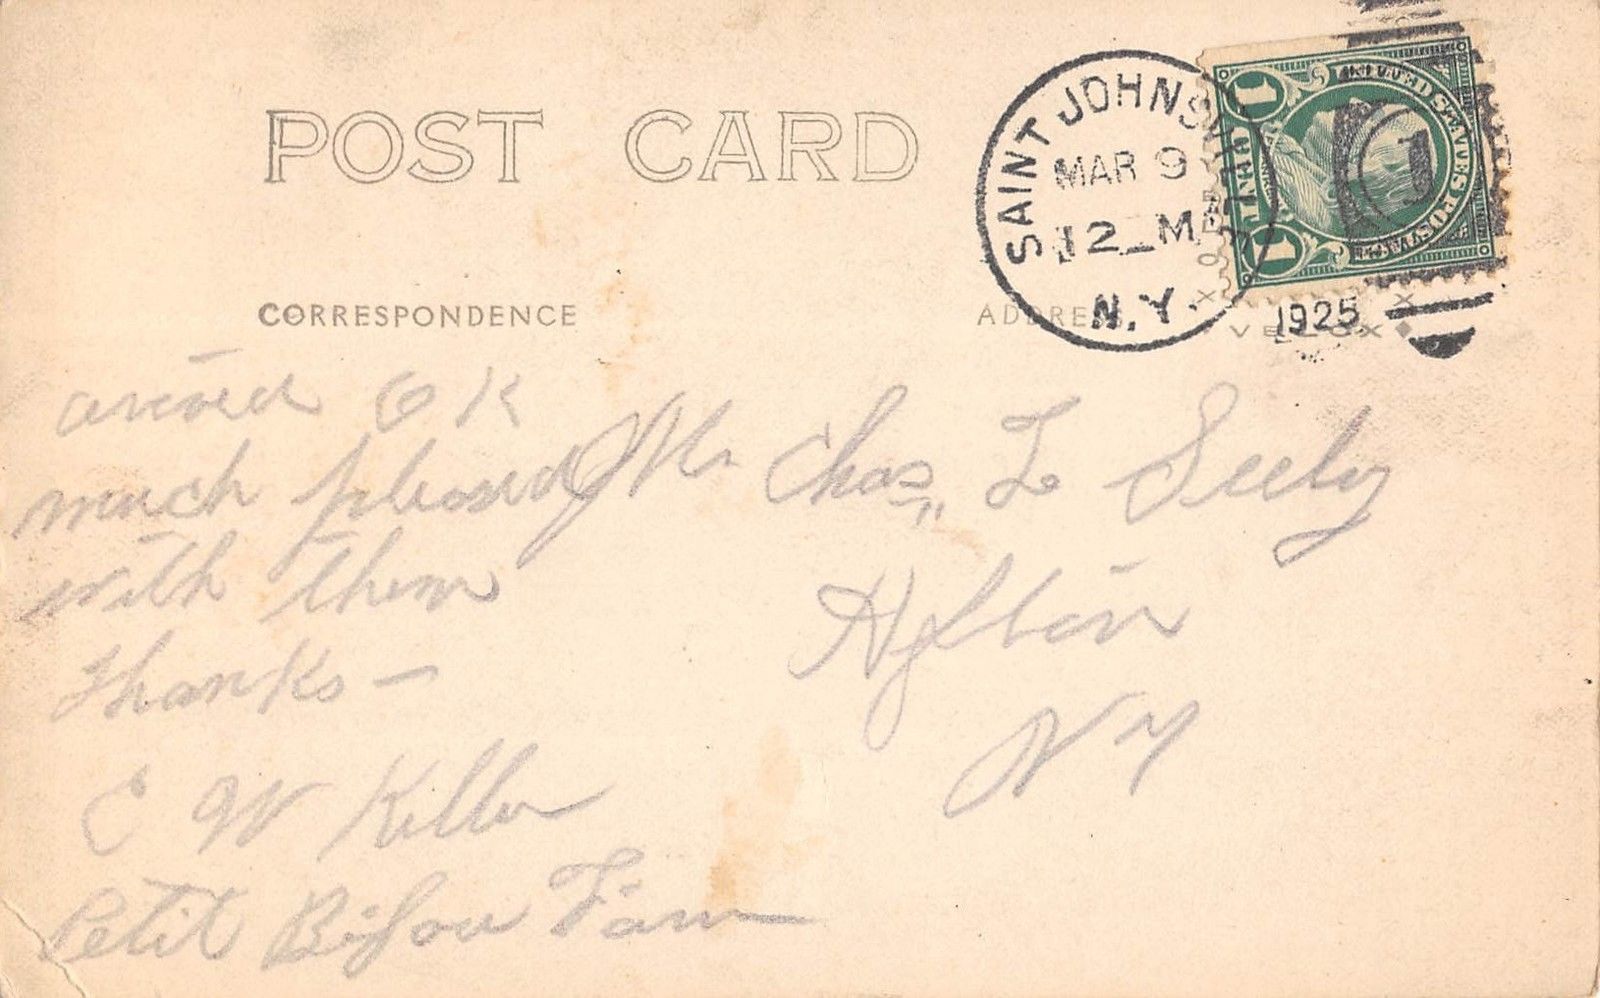 POST CARD
SAINT JOHNSVILLE
MAR 9
12 - M
N.Y.
1925
1 CENT 1
UNITED STATES POSTAGE
1
CORRESPONDENCE
ADDRESS
VELOX
arived OK
much pleased
with them
Thanks -
C W Keller
Petit Bijou Farm
Mr Chas,, L Seely
N Y